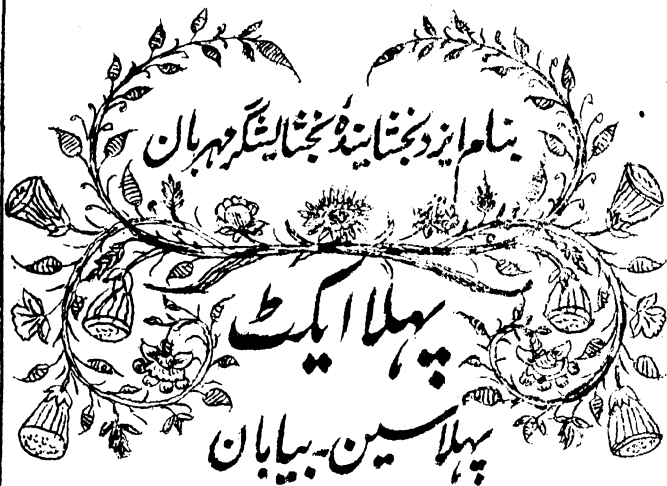 بنام ایزد بخشایندۂ بخشایشگر مہربان
پہلا ایکٹ
پہلا سین - بیابان